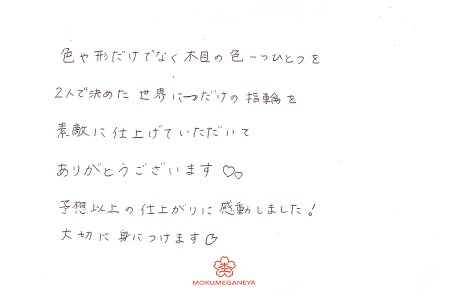 色や形だけでなく木目の色一つひとつを
2人で決めた世界に一つだけの指輪を
素敵に仕上げていただいて
ありがとうございます♡♡
予想以上の仕上がりに感動しました!
大切に身につけます♡
杢
MOKUMEGANEYA